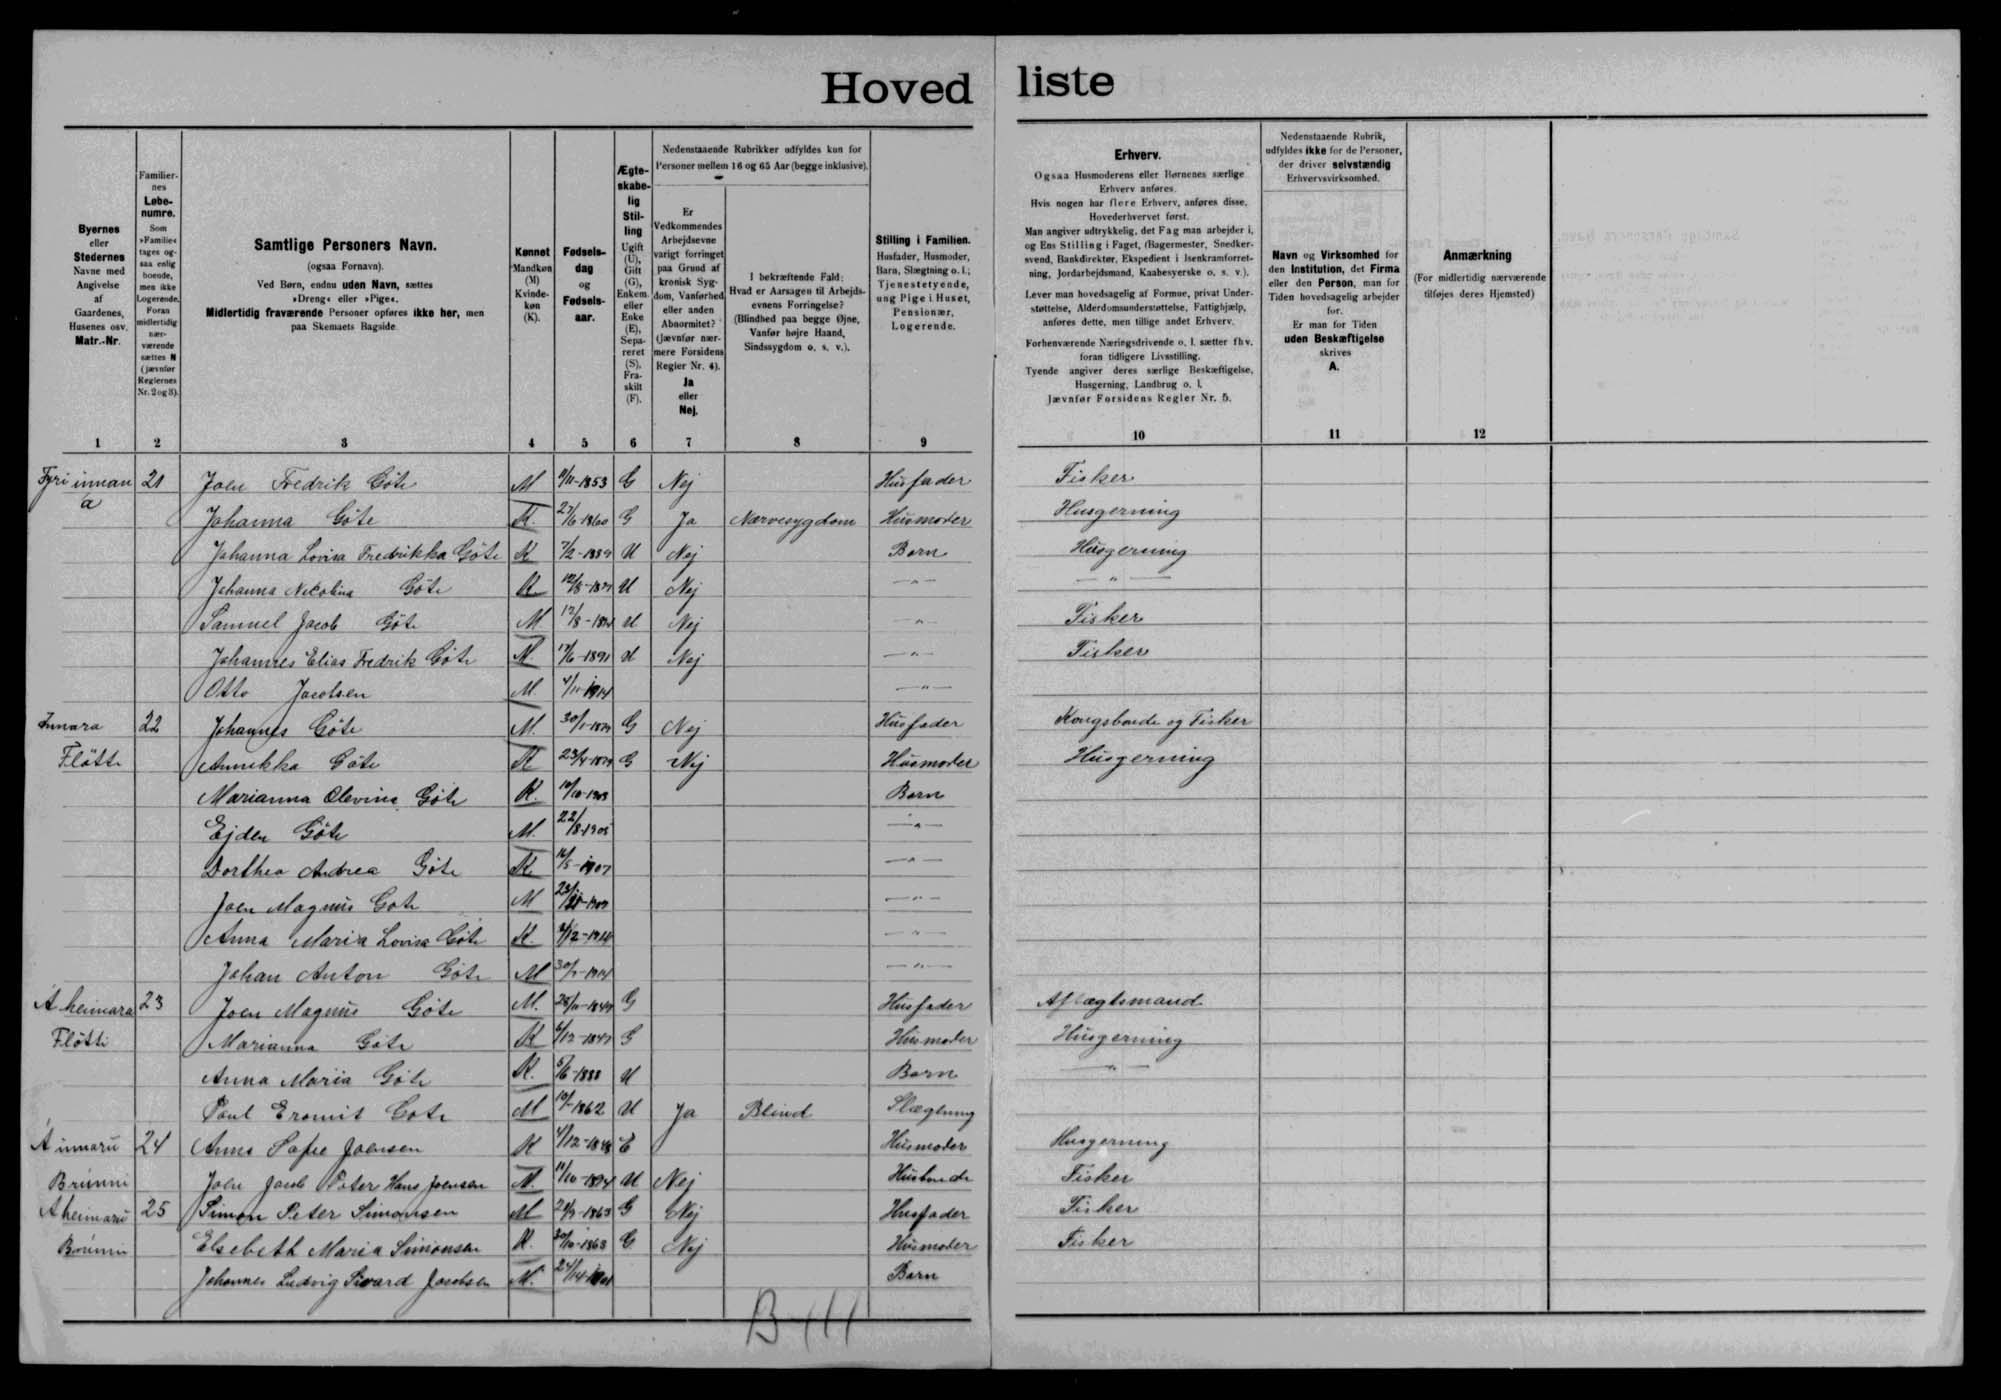 Hoved liste
Byernes
eller
Stedernes
Navne med
Angivelse
af
Gaardenes,
Husenes osv.
Matr.-Nr.
Familier-
nes
Løbe-
numre.
Som
»Familie«
tages og-
saa enlig
boende,
men ikke
Logerende.
Foran
midlertidig
nær-
værende
sættes N
(jævnfør
Reglernes
Nr. 2 og 3).
Samtlige Personers Navn.
(ogsaa Fornavn).
Ved Børn, endnu uden Navn, sættes
»Dreng« eller »Pige«.
Midlertidig fraværende Personer opføres ikke her, men
paa Skemaets Bagside.
Kønnet
Mandkøn
(M)
Kvinde-
køn
(K).
Fødsels-
dag
og
Fødsels-
aar.
Ægte-
skabe-
lig
Stil-
ling
Ugift
(U),
Gift
(G),
Enkem.
eller
Enke
(E),
Sepa-
reret
(S),
Fra-
skilt
(F).
Nedenstaaende Rubrikker udfyldes kun for
Personer mellem 16 og 65 Aar (begge inklusive).
Er
Vedkommendes
Arbejdsevne
varigt forringet
paa Grund af
kronisk Syg-
dom, Vanførhed
eller anden
Abnormitet?
(Jævnfør nær-
mere Forsidens
Regler Nr. 4).
Ja
eller
Nej.
I bekræftende Fald:
Hvad er Aarsagen til Arbejds-
evnens Forringelse?
(Blindhed paa begge Øjne,
Vanfør højre Haand,
Sindssygdom o. s. v.).
Stilling i Familien.
Husfader, Husmoder,
Barn, Slægtning o. l.;
Tjenestetyende,
ung Pige i Huset,
Pensionær,
Logerende.
Erhverv.
Ogsaa Husmoderens eller Børnenes særlige
Erhverv anføres.
Hvis nogen har flere Erhverv, anføres disse,
Hovederhvervet først.
Man angiver udtrykkelig, det Fag man arbejder i,
og Ens Stilling i Faget, (Bagermester, Snedker-
svend, Bankdirektør, Ekspedient i Isenkramforret-
ning, Jordarbejdsmand, Kaabesyerske o. s. v.).
Lever man hovedsagelig af Formue, privat Under-
støttelse, Alderdomsunderstøttelse, Fattighjælp,
anføres dette, men tillige andet Erhverv.
Forhenværende Næringsdrivende o. l. sætter fhv.
foran tidligere Livsstilling.
Tyende angiver deres særlige Beskæftigelse,
Husgerning, Landbrug o. l.
Jævnfør Forsidens Regler Nr. 5.
Nedenstaaende Rubrik,
udfyldes ikke for de Personer,
der driver selvstændig
Erhvervsvirksomhed.
Navn og Virksomhed for
den Institution, det Firma
eller den Person, man for
Tiden hovedsagelig arbejder
for.
Er man for Tiden
uden Beskæftigelse
skrives
A.
Anmærkning
(For midlertidig nærværende
tilføjes deres Hjemsted)
1 2 3 4 5 6 7 8 9 10 11 12
Fyri innan 21 Joen Fredrik Göte M 1853 G Nej Husfader Fisker
a Johanna Göte K. 27/6-1860 G Ja Nærvesygdom Husmoder Husgerning
Johanna Lovisa Fredrikka Göte K 7/2-1889 U Nej Barn Husgerning
Johanna Nicolina Göte K U Nej —"— —"—
Samuel Jacob Göte M U Nej —"— Fisker
Johannes Elias Fredrik Göte M. 17/6-1891 U Nej —"— Fisker
Otto Jacobsen M. —"—
Innara 22 Johannes Göte M. G Nej Husfader Kongsbonde og Fisker
Flötti Annikka Göte K G Nej Husmoder Husgerning
Marianna Olevina Göte K. Barn
Ejden Göte M. 22/8-1905 —"—
Dorthea Andrea Göte K 16/5-1907 —"—
Joen Magnus Gote M —"—
Anna Maria Lovisa Göte K. —"—
Johan Anton Göte M —"—
A heimara 23 Joen Magnus Göte M. G Husfader Aftægtsmand
Flötti Marianna Göte K G Husmoder Husgerning
Anna Maria Göte K. 5/6-1888 U Barn —"—
Poul Eromit Gote M 1862 U Ja Blind Slægtning
A innaru 24 Anna Sofie Joensen K E Husmoder Husgerning
Brúnni Joen Jacob Peter Hans Joensen M. 11/10-1894 U Nej Husbonde Fisker
A heimaru 25 Simon Peter Simonsen M G Nej Husfader Fisker
Brúnni Elsebeth Maria Simonsen K. G Nej Husmoder Fisker
Johannes Ludvig Sivard Jacobsen M. Barn